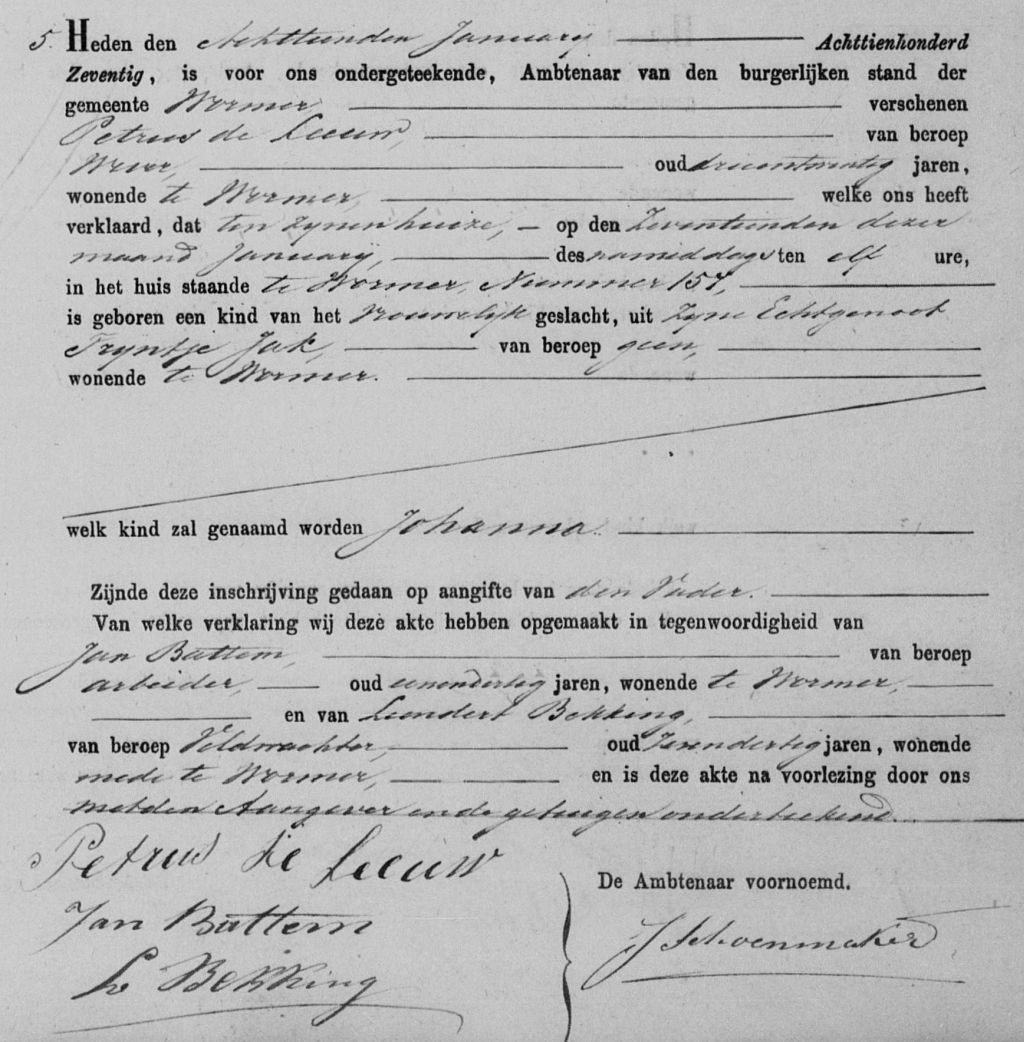 5. Heden den Achttienden January Achttienhonderd
Zeventig, is voor ons ondergeteekende, Ambtenaar van den burgerlijken stand der
gemeente Wormer verschenen
Petrus de Leeuw, van beroep
oud drieentwintig jaren,
wonende te Wormer, welke ons heeft
verklaard, dat ten zynen huize, — op den Zeventienden dezer
maand January, des namiddags ten elf ure,
in het huis staande te Wormer, Nummer 157,
is geboren een kind van het Vrouwelyk geslacht, uit Zyne Echtgenoot
Tryntje Jak, van beroep geen,
wonende te Wormer.
welk kind zal genaamd worden Johanna.
Zijnde deze inschrijving gedaan op aangifte van den Vader.
Van welke verklaring wij deze akte hebben opgemaakt in tegenwoordigheid van
Jan Buttem, van beroep
arbeider, oud eenendertig jaren, wonende te Wormer,
en van Leendert Bekking,
van beroep Veldwachter, oud jaren, wonende
mede te Wormer, en is deze akte na voorlezing door ons
met den Aangever en de getuigen onderteekend.
Petrus de Leeuw
De Ambtenaar voornoemd.
Jan Buttem
J Schoenmaker
L Bekking